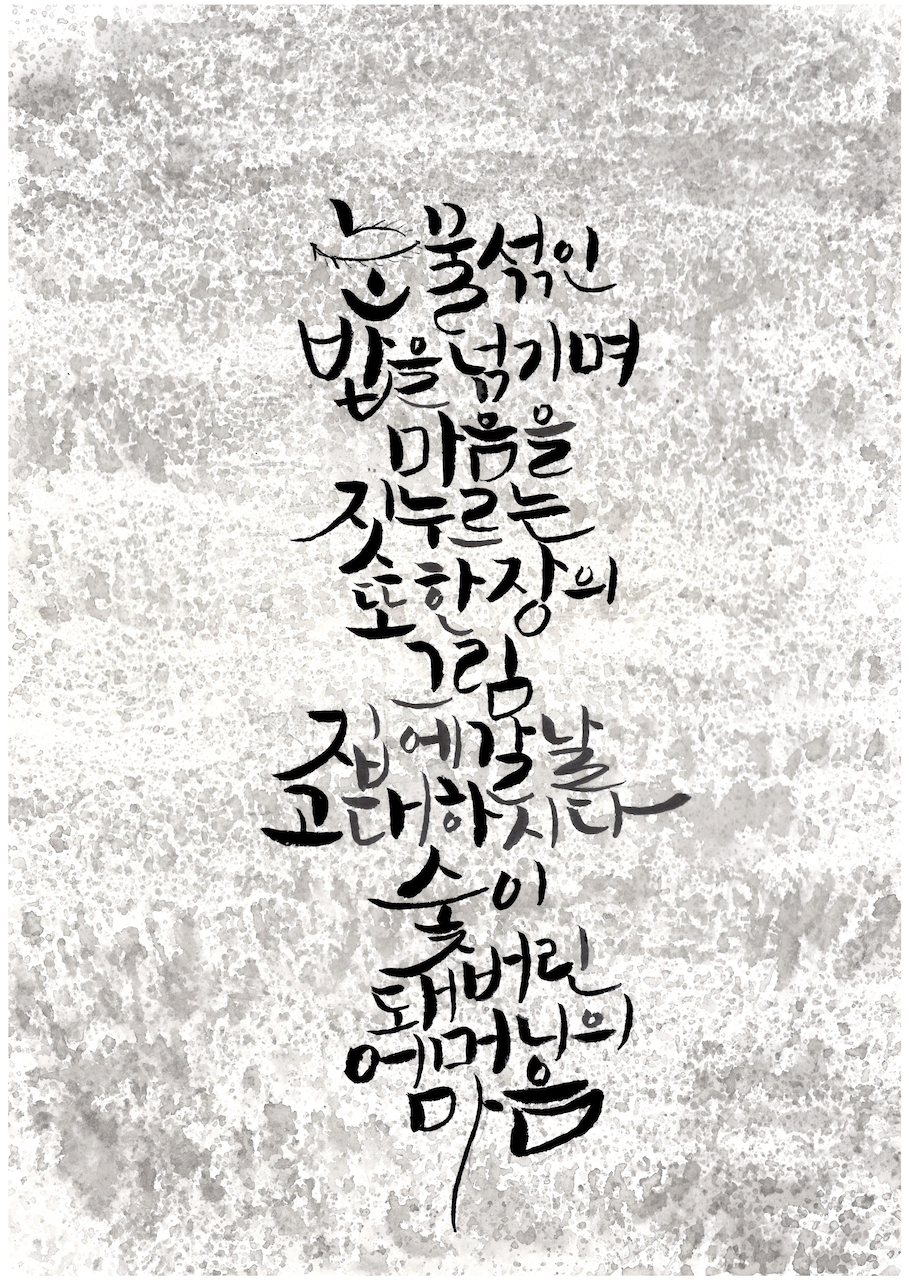 눈물섞인
밥을 넘기며
마음을
짓누르는
또 한 장의
그림
집에 갈 날
고대하시다
숯이
돼버린
에머님의
마음